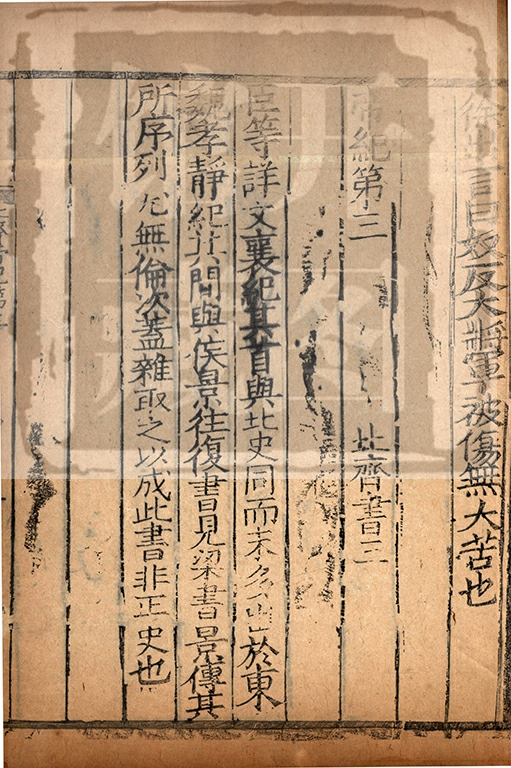 徐出言曰奴反大將軍被傷無大苦也
帝紀第三 北齊書三
臣等詳文襄紀其首與北史同而末多出於東
魏孝靜紀其間與侯景往復書見梁書景傳其
所序列尤無倫次蓋雜取之以成此書非正史也